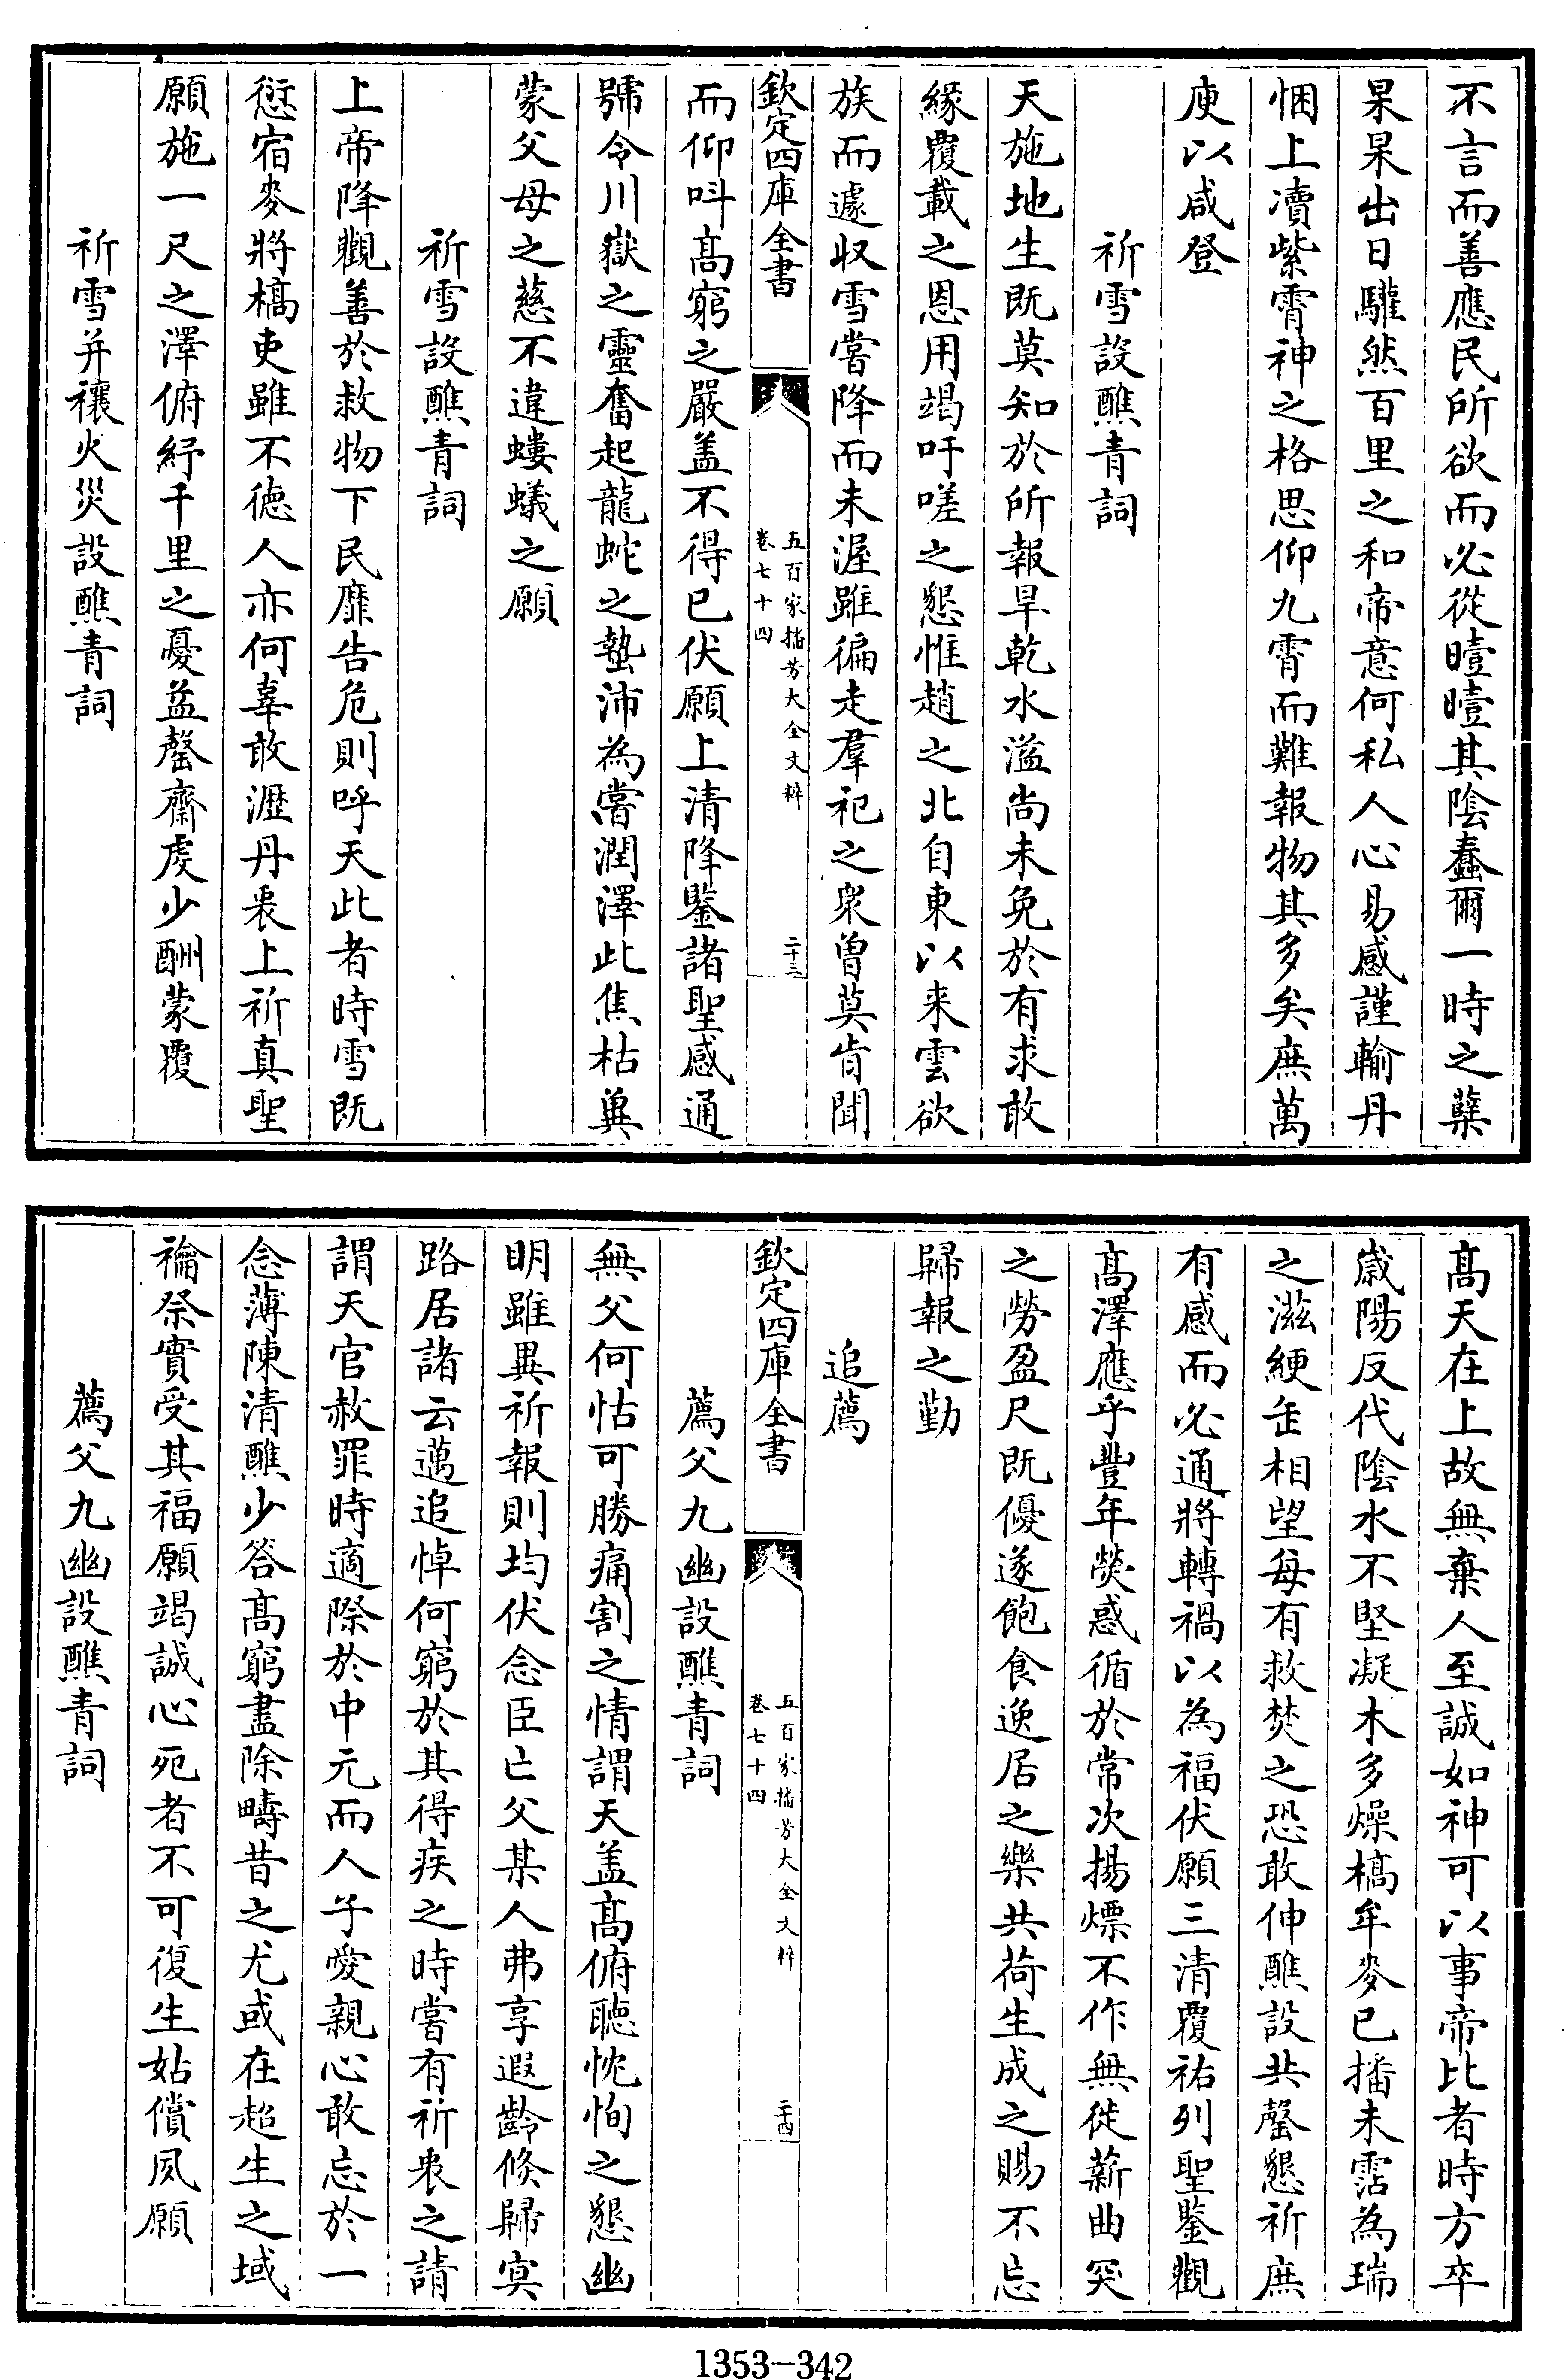 不言而善應民所欲而必從曀曀其陰蠢爾一時之蘖
杲杲出日驩然百里之和帝意何私人心易感謹輸丹
悃上瀆紫霄神之格思仰九霄而難報物其多矣庶萬
庾以咸登
祈雪設醮青詞
天施地生既莫知於所報旱乾水溢尚未免於有求敢
緣覆載之恩用竭吁嗟之懇惟趙之北自東以来雲欲
族而遽収雪嘗降而未渥雖徧走羣祀之衆曾莫肯聞
欽定四庫全書
五百家播芳大全文粹
卷七十四
二十三
而仰呌髙窮之嚴盖不得已伏願上清降鑒諸聖感通
號令川嶽之靈奮起龍蛇之蟄沛為嘗潤澤此焦枯兾
蒙父母之慈不違螻蟻之願
祈雪設醮青詞
上帝降觀善於救物下民靡告危則呼天此者時雪既
愆宿麥將槁吏雖不徳人亦何辜敢瀝丹衷上祈真聖
願施一尺之澤俯紓千里之憂益罄齋虔少酬蒙覆
祈雪并禳火災設醮青詞
髙天在上故無棄人至誠如神可以事帝比者時方卒
嵗陽反代陰水不堅凝木多燥槁牟麥已播未霑為瑞
之滋綆缶相望每有救焚之恐敢伸醮設共罄懇祈庶
有感而必通將轉禍以為福伏願三清覆祐列聖鑒觀
髙澤應乎豐年熒惑循於常次揚熛不作無徙薪曲突
之勞盈尺既優遂飽食逸居之樂共荷生成之賜不忘
歸報之勤
追薦
欽定四庫全書
五百家播芳大全文粹
卷七十四
二十四
薦父九幽設醮青詞
無父何怙可勝痛割之情謂天盖髙俯聴忱恂之懇幽
明雖異祈報則均伏念臣亡父某人弗享遐齡倐歸㝠
路居諸云邁追悼何窮於其得疾之時嘗有祈衷之請
謂天官赦罪時適際於中元而人子愛親心敢忘於一
念薄陳清醮少答髙窮盡除疇昔之尤或在超生之域
禴祭實受其福願竭誠心死者不可復生姑償夙願
薦父九幽設醮青詞
1353-342